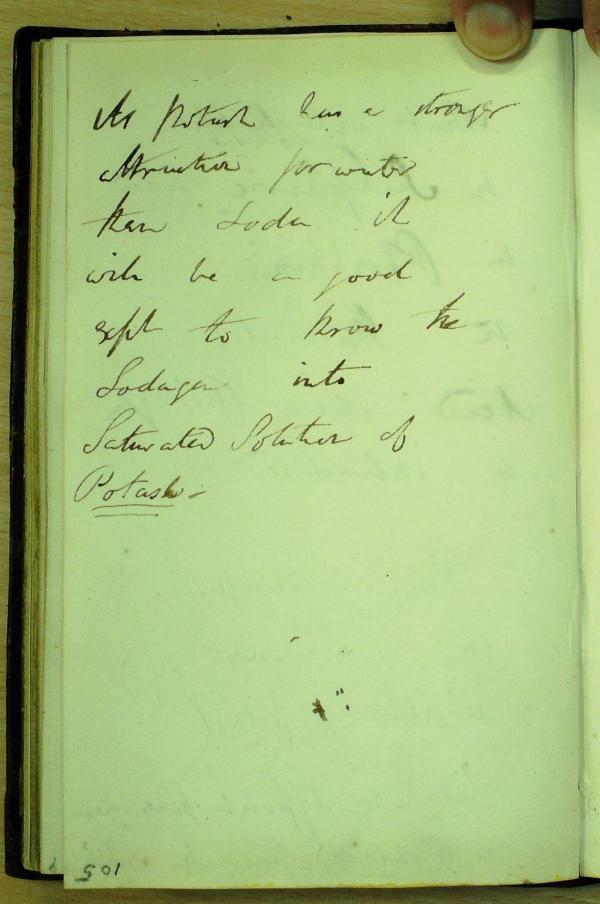 As Potash has a stronger
attraction for water
than Soda it
will be a good
expt to throw the
Sodagen into
Saturated Solution of
Potash.-
501